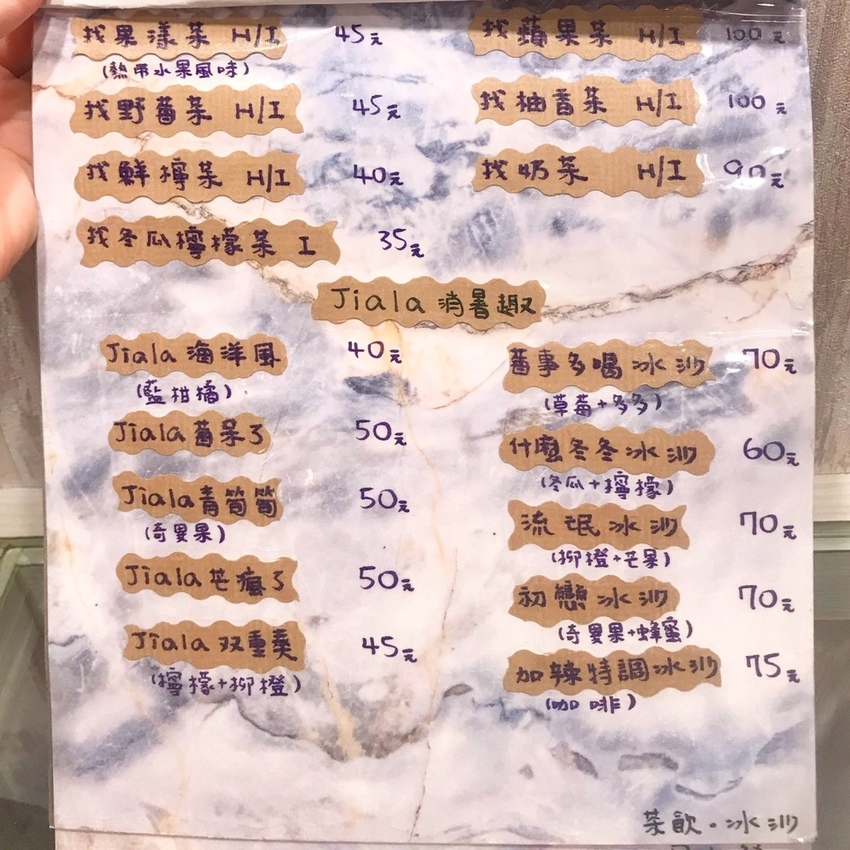 找果漾茶 H/I 45元
(熱帶水果風味)
找野莓茶 H/I 45元
找鮮檸茶 H/I 40元
找冬瓜檸檬茶 I 35元
找蘋果茶 H/I 100元
找柚香茶 H/I 100元
找奶茶 H/I 90元
Jiala 消暑趣
Jiala 海洋風 40元
(藍柑橘)
Jiala 莓呆了 50元
Jiala 青筒筒 50元
(奇異果)
Jiala 芒瘋了 50元
Jiala 双重奏 45元
(檸檬+柳橙)
莓事多喝冰沙 70元
(草莓+多多)
什麼冬冬冰沙 60元
(冬瓜+檸檬)
流氓冰沙 70元
(柳橙+芒果)
初戀冰沙 70元
(奇異果+蜂蜜)
加辣特調冰沙 75元
(咖啡)
茶飲.冰沙